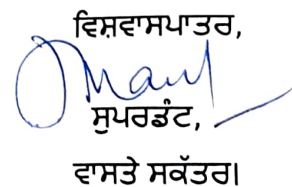 ਵਿਸ਼ਵਾਸਪਾਤਰ,
ਸੁਪਰਡੰਟ,
ਵਾਸਤੇ ਸਕੱਤਰ।